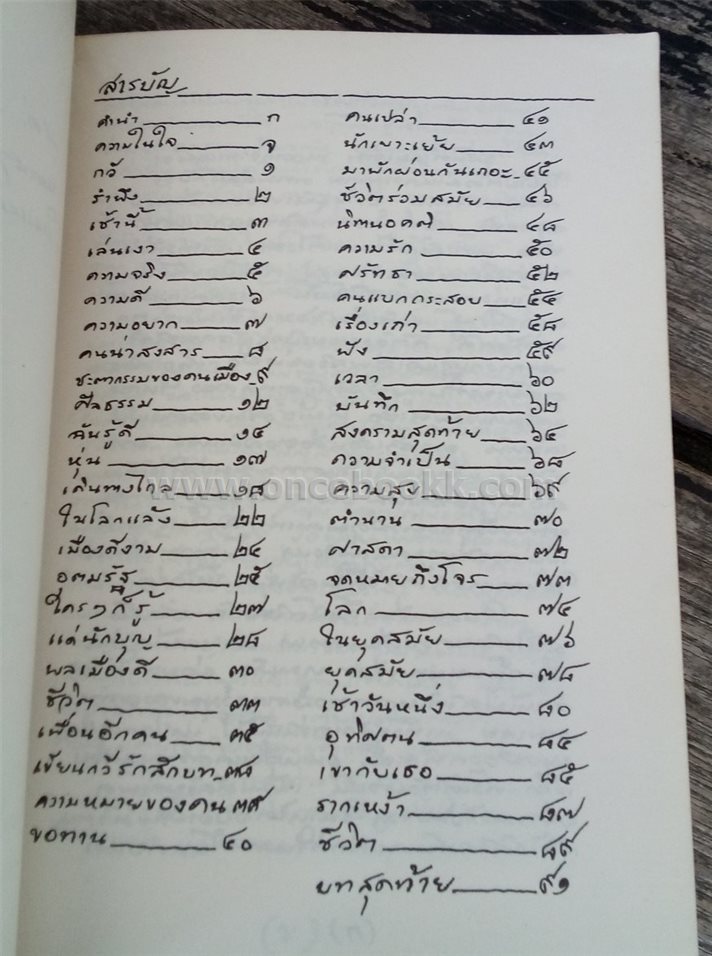 สารบัญ
คำนำ ก
ความในใจ จ
กวี ๑
รำพึง ๒
เช้านี้ ๓
เล่นเงา ๔
ความจริง ๕
ความดี ๖
ความอยาก ๗
คนน่าสงสาร ๘
ชะตากรรมของคนเมือง ๙
ศีลธรรม ๑๒
ฉันรู้ดี ๑๔
หุ่น ๑๗
เดินทางไกล ๑๘
ในโลกแล้ง ๒๒
เมืองดีงาม ๒๔
อตมรัฐ ๒๕
ใครๆก็รู้ ๒๗
แด่นักบุญ ๒๘
พลเมืองดี ๓๐
ชีวิต ๓๓
เพื่อนอีกคน ๓๕
เขียนกวีรักสักบท ๓๘
ความหมายของคน ๓๙
ขอทาน ๔๐
คนเปล่า ๔๑
นักเยาะเย้ย ๔๓
มาพักผ่อนกันเถอะ ๔๕
ชีวิตร่วมสมัย ๔๖
นิทานอคติ ๔๘
ความรัก ๕๐
ศรัทธา ๕๒
คนแบกกระสอบ ๕๔
เรื่องเก่า ๕๘
ฟัง ๕๙
เวลา ๖๐
บันทึก ๖๒
สงครามสุดท้าย ๖๔
ความจำเป็น ๖๘
ความสุข ๖๙
ตำนาน ๗๐
ศาสดา ๗๒
จดหมายถึงโจร ๗๓
โลก ๗๔
ในยุคสมัย ๗๖
ยุคสมัย ๗๘
เช้าวันหนึ่ง ๘๐
อุทิศตน ๘๔
เขากับเธอ ๘๕
รากเหง้า ๘๗
ชีวิต ๘๙
บทสุดท้าย ๙๑
www.oncebookk.com